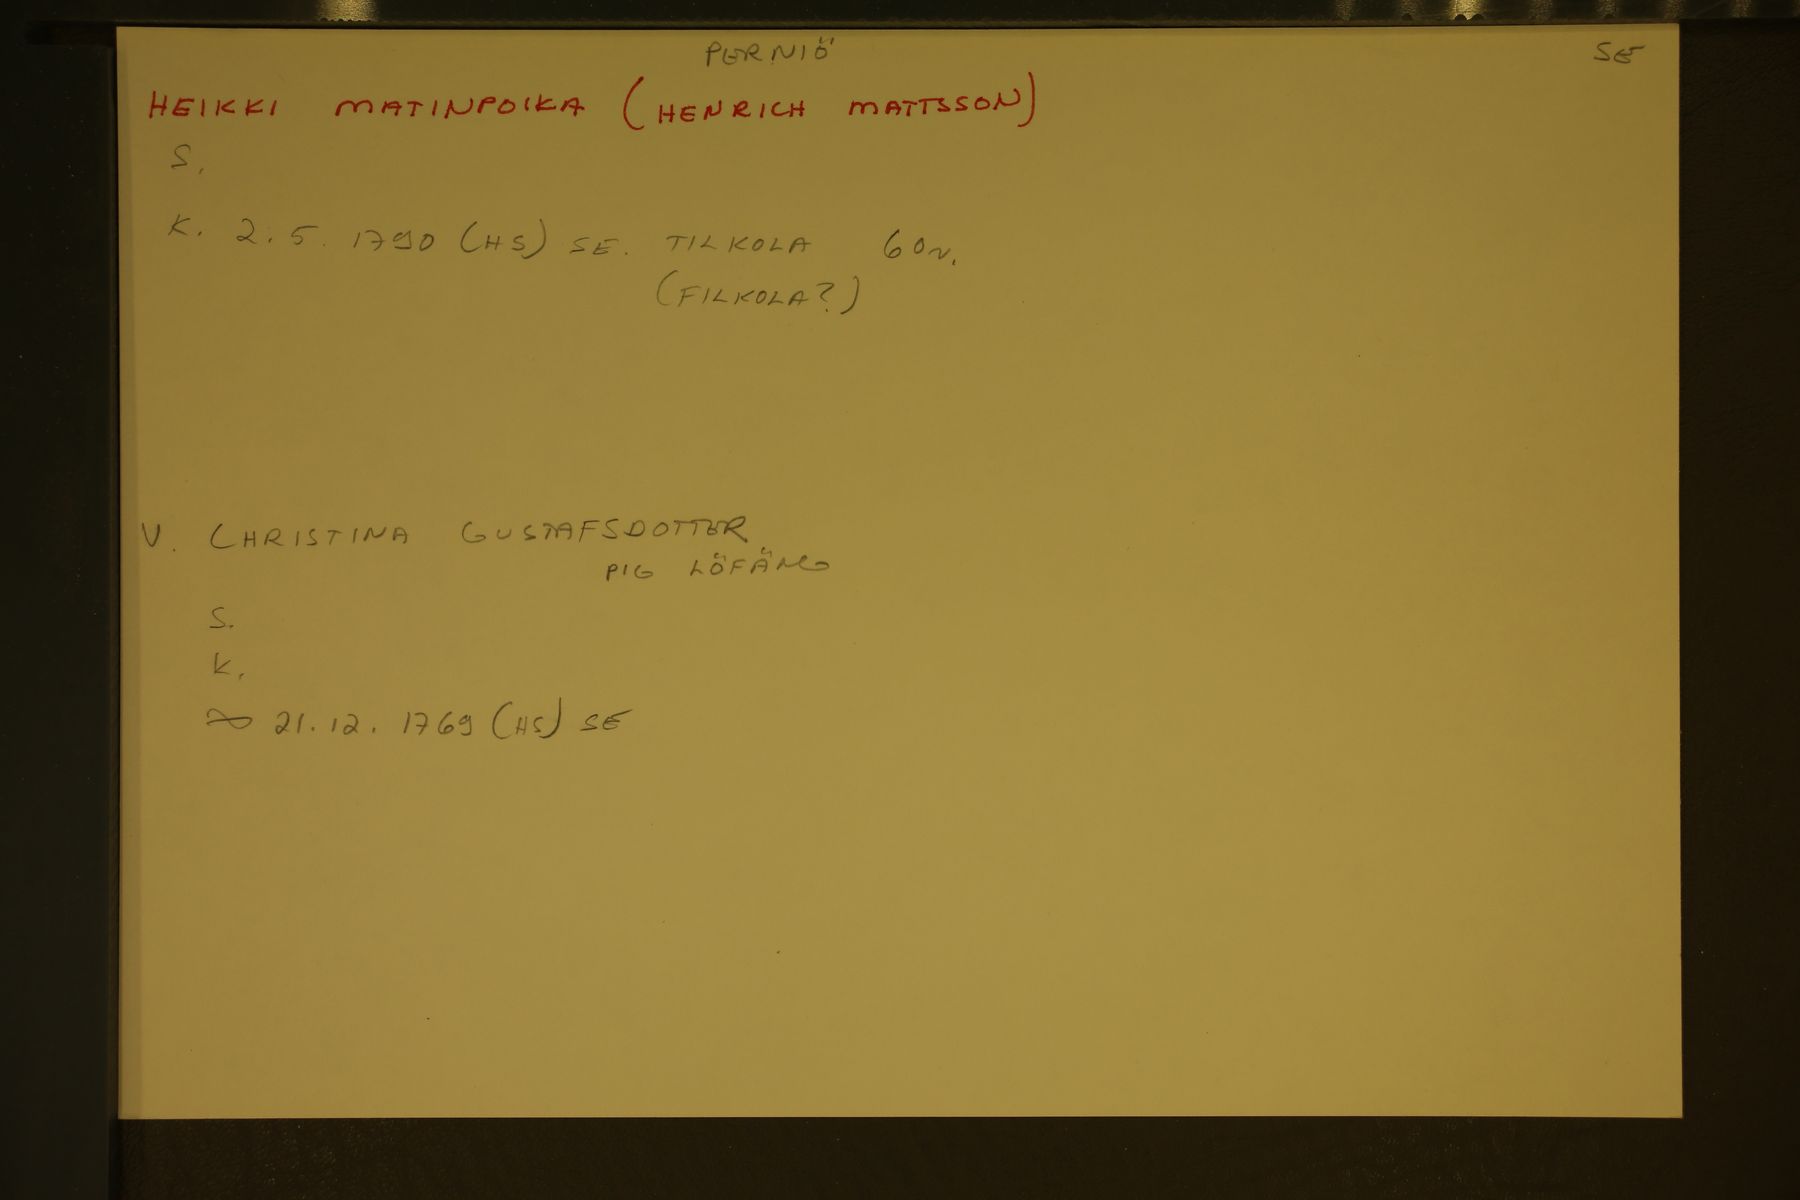 PERNIÖ SE
HEIKKI MATINPOIKA (HENRICH MATTSSON)
S.
K. 2.5.1790 (HS) SE. TILKOLA 60v.
(FILKOLA?)
V. CHRISTINA GUSTAFSDOTTER
PIG LÖFÄNG
S.
K.
∞ 21.12.1769 (HS) SE